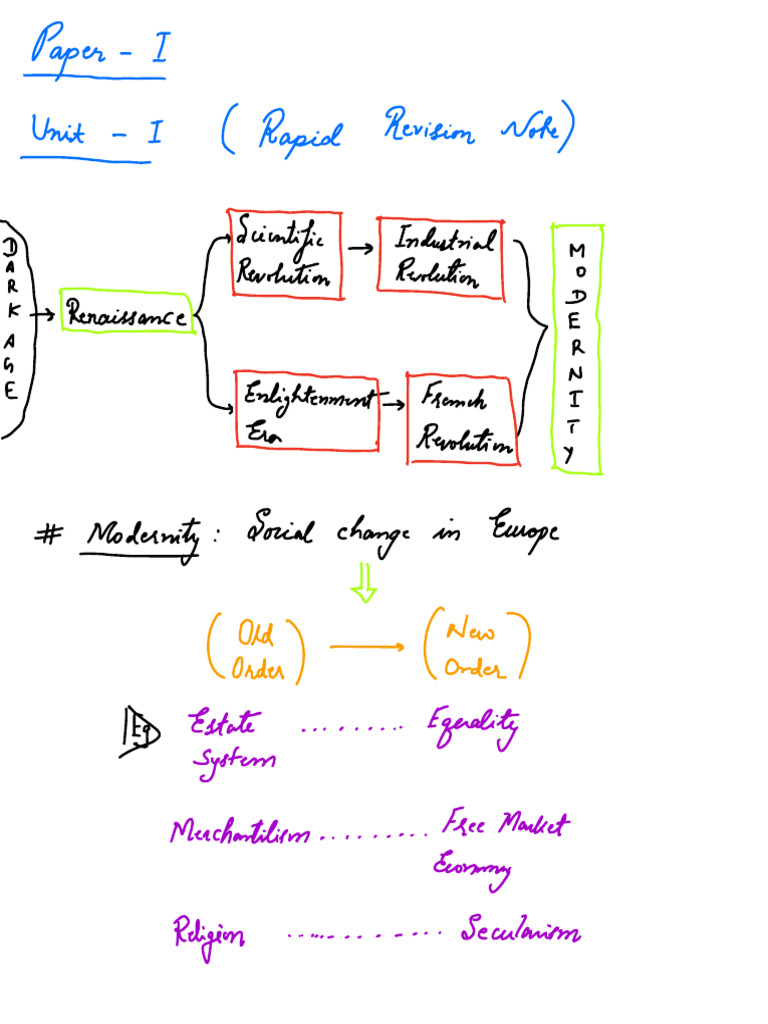 Paper - I
Unit - I ( Rapid Revision Note)
DARK AGE
Renaissance
Scientific
Revolution
Industrial
Revolution
Enlightenment
Era
French
Revolution
MODERNITY
# Modernity : Social change in Europe
(Old
Order)
(New
Order)
Eg
Estate ........ Equality
System
Merchantilism ......... Free Market
Economy
Religion ............ Secularism